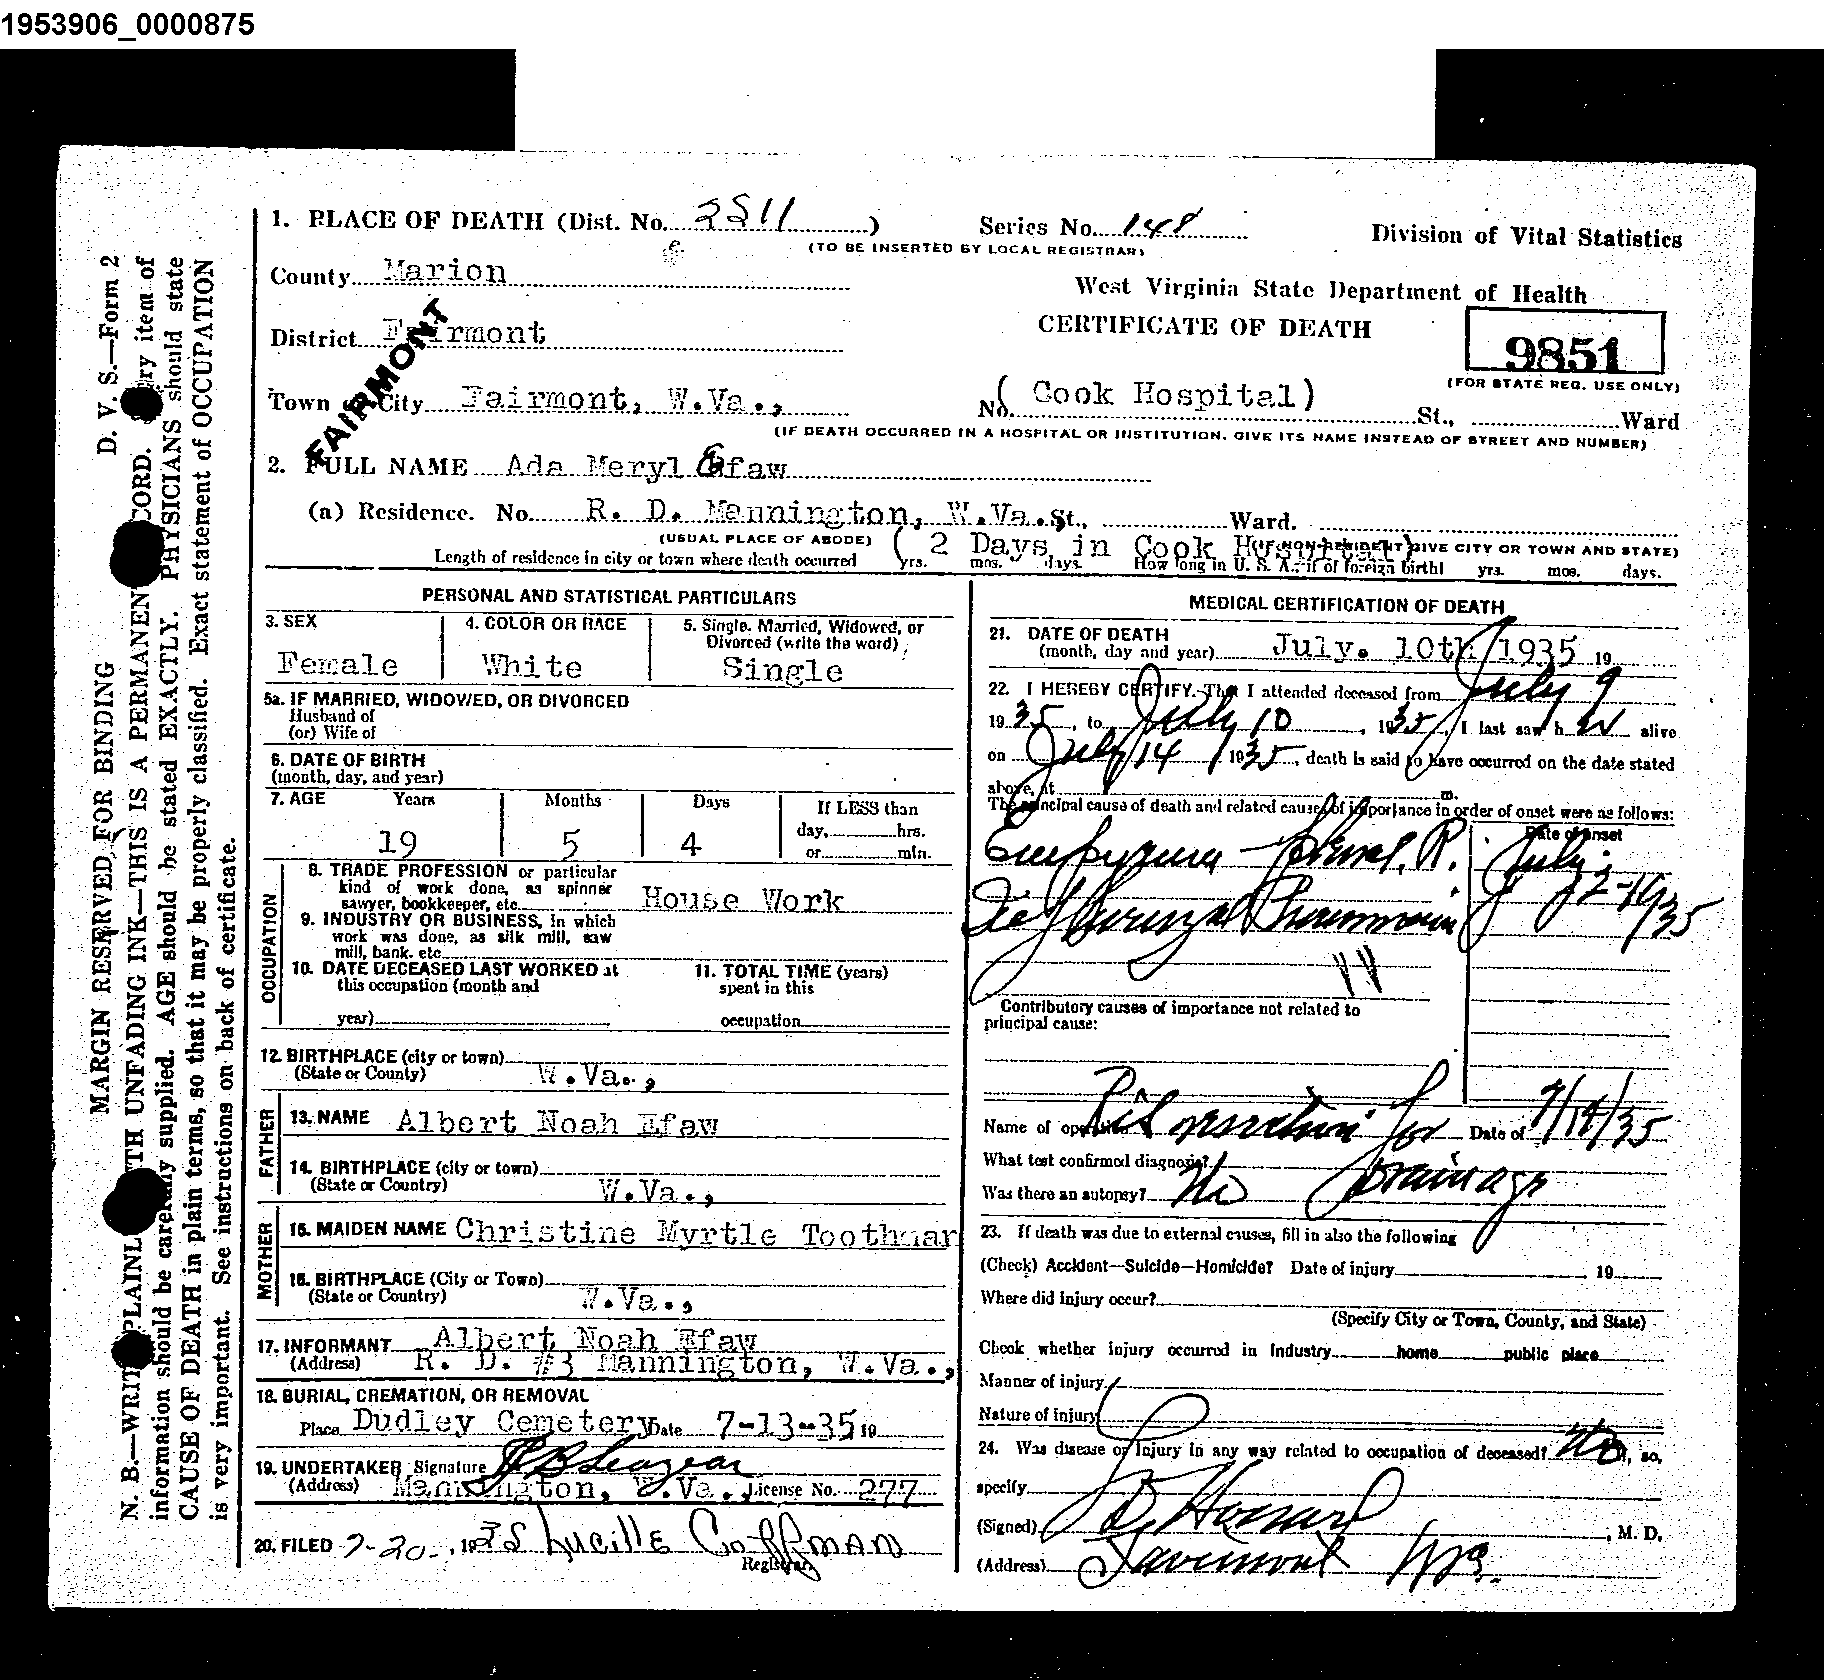 1953906_0000875
1. PLACE OF DEATH (Dist. No. 2511)
Series No. 148
(TO BE INSERTED BY LOCAL REGISTRAR)
Division of Vital Statistics
County Marion
West Virginia State Department of Health
CERTIFICATE OF DEATH
9851
(FOR STATE REG. USE ONLY)
District Fairmont
FAIRMONT
Town or City Fairmont, W.Va.,
No. ( Cook Hospital) St., Ward
(IF DEATH OCCURRED IN A HOSPITAL OR INSTITUTION, GIVE ITS NAME INSTEAD OF STREET AND NUMBER)
2. FULL NAME Ada Meryl Efaw
(a) Residence. No. R. D. Mannington, W.Va. St., Ward.
(USUAL PLACE OF ABODE) ( 2 Days in Cook Hospital) (IF NON-RESIDENT GIVE CITY OR TOWN AND STATE)
Length of residence in city or town where death occurred yrs. mos. days. How long in U. S. A. if of foreign birth? yrs. mos. days.
PERSONAL AND STATISTICAL PARTICULARS
3. SEX
Female
4. COLOR OR RACE
White
5. Single, Married, Widowed, or
Divorced (write the word)
Single
5a. IF MARRIED, WIDOWED, OR DIVORCED
Husband of
(or) Wife of
6. DATE OF BIRTH
(month, day, and year)
7. AGE Years Months Days If LESS than
day, hrs.
or min.
19 5 4
OCCUPATION
8. TRADE PROFESSION or particular
kind of work done, as spinner
sawyer, bookkeeper, etc. House Work
9. INDUSTRY OR BUSINESS, in which
work was done, as silk mill, saw
mill, bank, etc.
10. DATE DECEASED LAST WORKED at
this occupation (month and
year)
11. TOTAL TIME (years)
spent in this
occupation
12. BIRTHPLACE (city or town)
(State or County) W.Va.,
FATHER
13. NAME Albert Noah Efaw
14. BIRTHPLACE (city or town)
(State or Country) W.Va.,
MOTHER
15. MAIDEN NAME Christine Myrtle Toothman
16. BIRTHPLACE (City or Town)
(State or Country) W.Va.,
17. INFORMANT Albert Noah Efaw
(Address) R. D. #3 Mannington, W.Va.,
18. BURIAL, CREMATION, OR REMOVAL
Place Dudley Cemetery Date 7-13-35 19
19. UNDERTAKER Signature
(Address) Mannington, W.Va., License No. 277
20. FILED 7-20-, 1935 Lucille Coffman
Registrar
MEDICAL CERTIFICATION OF DEATH
21. DATE OF DEATH
(month, day and year) July. 10th 1935 19
22. I HEREBY CERTIFY, That I attended deceased from July 9
1935, to July 10, 1935, I last saw her alive
on July 14 1935, death is said to have occurred on the date stated
above, at m.
The principal cause of death and related causes of importance in order of onset were as follows:
Date of onset
Empyema R. July
Pneumonia 2-1935
11
Contributory causes of importance not related to
principal cause:
Name of operation Rib for Date of 7/14/35
What test confirmed diagnosis? Drainage
Was there an autopsy? No
23. If death was due to external causes, fill in also the following
(Check) Accident—Suicide—Homicide? Date of injury 19
Where did injury occur?
(Specify City or Town, County, and State)
Check whether injury occurred in Industry home public place
Manner of injury
Nature of injury
24. Was disease or injury in any way related to occupation of deceased? No, so,
specify
(Signed) , M. D.
(Address) Fairmont W Va.
MARGIN RESERVED FOR BINDING D. V. S.—Form 2
N. B.—WRITE PLAINLY WITH UNFADING INK—THIS IS A PERMANENT RECORD. Every item of
information should be carefully supplied. AGE should be stated EXACTLY. PHYSICIANS should state
CAUSE OF DEATH in plain terms, so that it may be properly classified. Exact statement of OCCUPATION
is very important. See instructions on back of certificate.